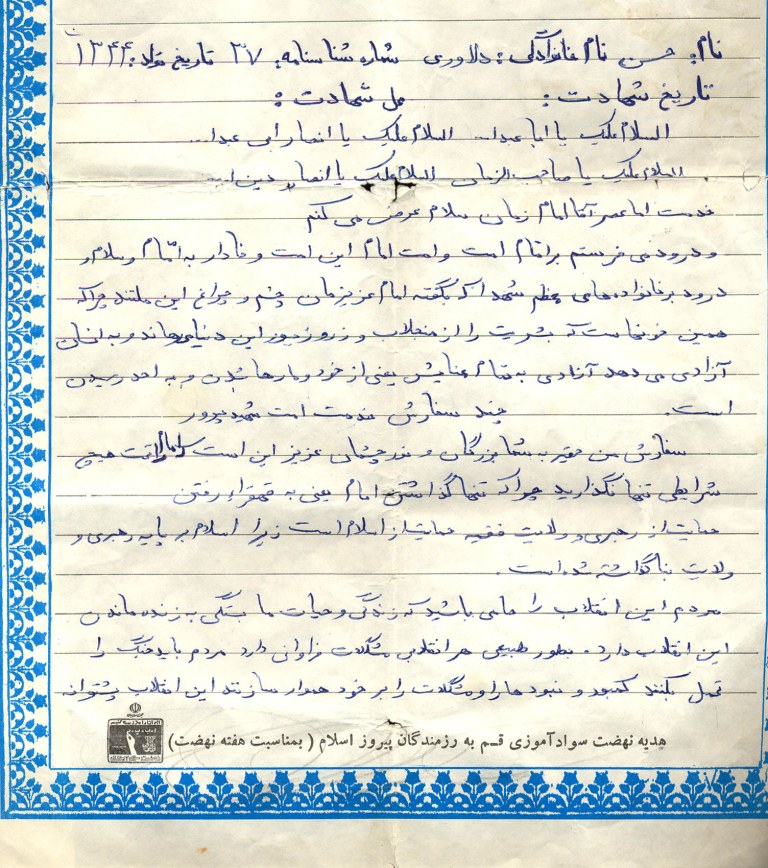 نام: حسن نام خانوادگی: دلاوری شماره شناسنامه: ۳۷ تاریخ تولد: ۱۳۴۴
تاریخ شهادت: محل شهادت:
السلام علیک یا ابا عبدا... السلام علیک یا انصار ابی عبدا...
السلام علیک یا صاحب الزمان السلام علیک یا انصار دین ا...
خدمت امام عصر آقا امام زمان سلام عرض می کنم
و درود می فرستم بر امام امت و امت امام این امت وفادار به امام و سلام و
درود بر خانواده های معظم شهدا که بگفته امام عزیزمان چشم و چراغ این ملتند چرا که
همین خونهاست که بشریت را از منجلاب و زر و زیور این دنیا میرهاند و به انسان
آزادی می دهد آزادی به تمام معنایش یعنی از خود و رها شدن و به احد رسیدن
است. چند سفارش خدمت امت شهید پرور
سفارش من حقیر به شما بزرگان و نور چشمان عزیز این است که امام را تحت هیچ
شرایطی تنها نگذارید چرا که تنها گذاشتن امام یعنی به قهقرا رفتن
حمایت از رهبری و ولایت فقیه حمایت از اسلام است زیرا اسلام بر پایه رهبری و
ولایت بنا گذاشته شده است.
مردم این انقلاب را حامی باشید که زندگی و حیات ما بستگی به زنده ماندن
این انقلاب دارد. بطور طبیعی هر انقلابی مشکلات فراوانی دارد مردم باید جنگ را
تحمل بکنند کمبود و نبودها را و مشکلات را بر خود هموار سازند این انقلاب پشتوانه
هدیه نهضت سوادآموزی قسم به رزمندگان پیروز اسلام ( بمناسبت هفته نهضت )